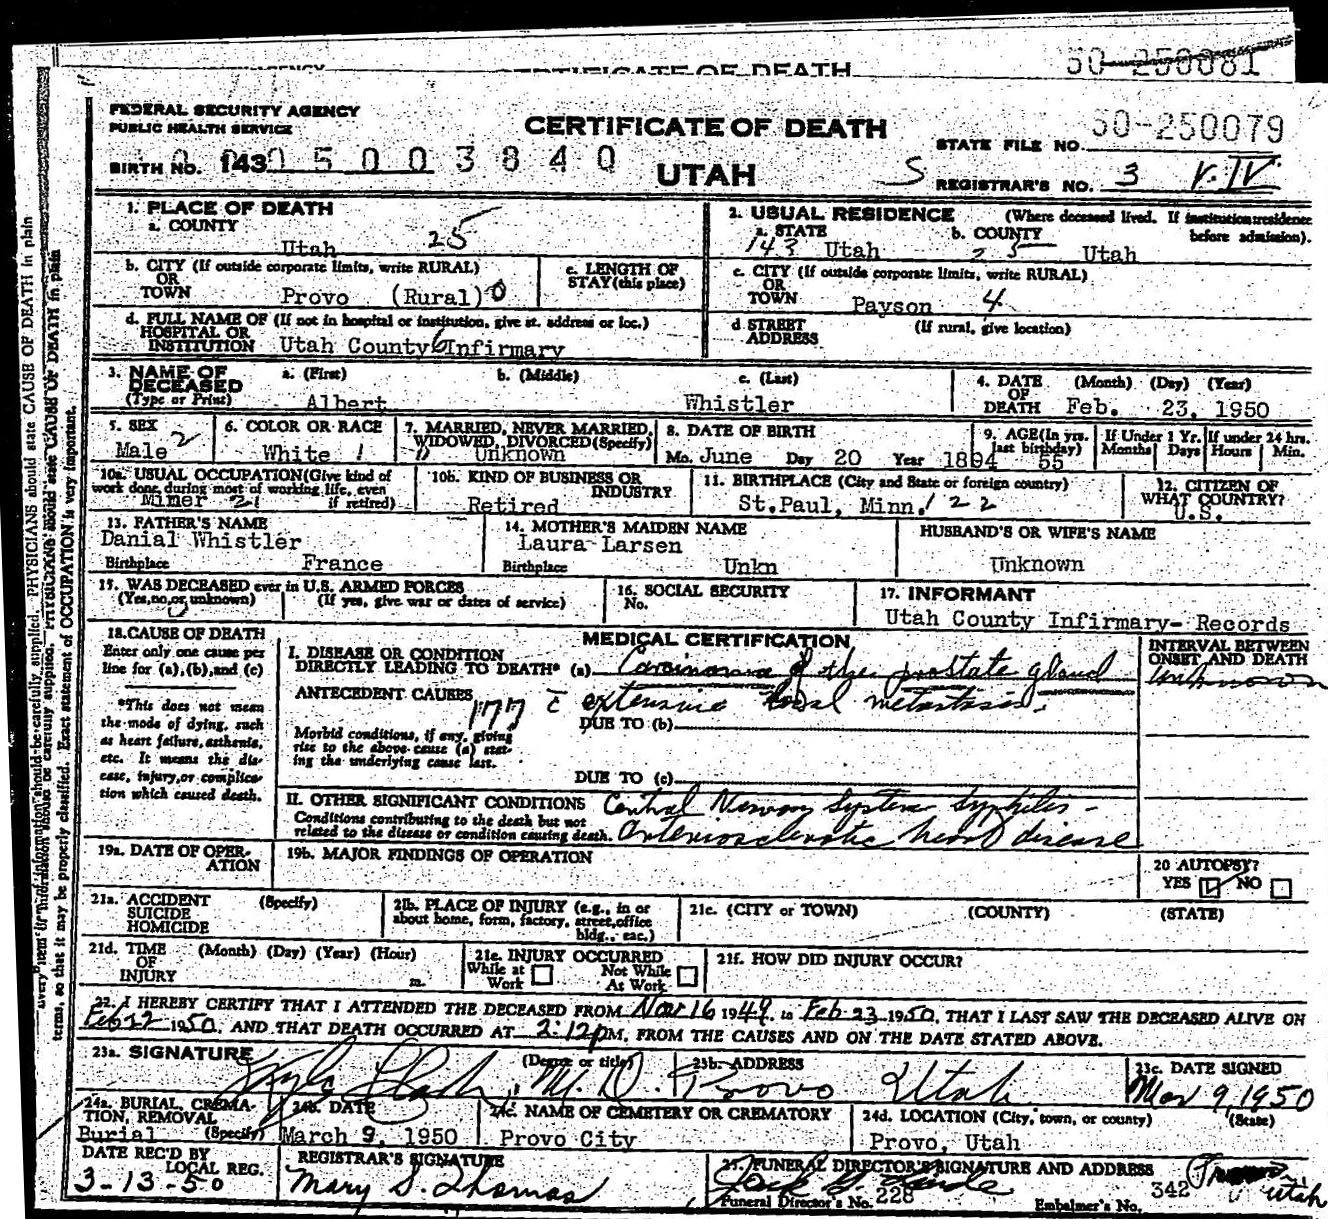 CERTIFICATE OF DEATH 50-250081
FEDERAL SECURITY AGENCY
PUBLIC HEALTH SERVICE
CERTIFICATE OF DEATH
UTAH
STATE FILE NO. 50-250079
BIRTH NO. 143 05003840
S REGISTRAR'S NO. 3 V.IV
1. PLACE OF DEATH
a. COUNTY
Utah 25
2. USUAL RESIDENCE (Where deceased lived. If institution: residence before admission).
a. STATE b. COUNTY
143 Utah 25 Utah
b. CITY (If outside corporate limits, write RURAL)
OR
TOWN Provo (Rural) 0
c. LENGTH OF
STAY (this place)
c. CITY (If outside corporate limits, write RURAL)
OR
TOWN Payson 4
d. FULL NAME OF (If not in hospital or institution, give st. address or loc.)
HOSPITAL OR
INSTITUTION Utah County 6 Infirmary
d STREET (If rural, give location)
ADDRESS
3. NAME OF DECEASED
(Type or Print)
a. (First) b. (Middle) c. (Last)
Albert Whistler
4. DATE OF DEATH (Month) (Day) (Year)
Feb. 23, 1950
5. SEX
Male 2
6. COLOR OR RACE
White 1
7. MARRIED, NEVER MARRIED,
WIDOWED, DIVORCED (Specify)
Unknown
8. DATE OF BIRTH
Mo. June Day 20 Year 1894
9. AGE (In yrs. last birthday)
55
If Under 1 Yr.
Months Days
If under 24 hrs.
Hours Min.
10a. USUAL OCCUPATION (Give kind of
work done, during most of working life, even
if retired)
Miner 21
10b. KIND OF BUSINESS OR
INDUSTRY
Retired
11. BIRTHPLACE (City and State or foreign country)
St.Paul, Minn. 122
12. CITIZEN OF
WHAT COUNTRY?
U.S.
13. FATHER'S NAME
Danial Whistler
Birthplace France
14. MOTHER'S MAIDEN NAME
Laura Larsen
Birthplace Unkn
HUSBAND'S OR WIFE'S NAME
Unknown
15. WAS DECEASED ever in U.S. ARMED FORCES
(Yes, no, or unknown) (If yes, give war or dates of service)
16. SOCIAL SECURITY
No.
17. INFORMANT
Utah County Infirmary- Records
18. CAUSE OF DEATH
Enter only one cause per
line for (a), (b), and (c)
*This does not mean
the mode of dying, such
as heart failure, asthenia,
etc. It means the dis-
ease, injury, or complica-
tion which caused death.
MEDICAL CERTIFICATION
I. DISEASE OR CONDITION
DIRECTLY LEADING TO DEATH* (a) Carcinoma of the prostate gland
ANTECEDENT CAUSES 177 c̄ extensive local metastasis.
DUE TO (b)
Morbid conditions, if any, giving
rise to the above cause (a) stat-
ing the underlying cause last.
DUE TO (c)
II. OTHER SIGNIFICANT CONDITIONS Central Nervous System Syphilis -
Conditions contributing to the death but not
related to the disease or condition causing death. Arteriosclerotic heart disease
INTERVAL BETWEEN
ONSET AND DEATH
unknown
19a. DATE OF OPER-
ATION
19b. MAJOR FINDINGS OF OPERATION
20 AUTOPSY?
YES NO
21a. ACCIDENT (Specify)
SUICIDE
HOMICIDE
21b. PLACE OF INJURY (e.g., in or
about home, form, factory, street, office
bldg., eac.)
21c. (CITY or TOWN) (COUNTY) (STATE)
21d. TIME (Month) (Day) (Year) (Hour)
OF
INJURY m.
21e. INJURY OCCURRED
While at Work Not While At Work
21f. HOW DID INJURY OCCUR?
22. I HEREBY CERTIFY THAT I ATTENDED THE DECEASED FROM Nov 16 1949, to Feb 23 1950, THAT I LAST SAW THE DECEASED ALIVE ON
Feb 22 1950, AND THAT DEATH OCCURRED AT 2:12 pM, FROM THE CAUSES AND ON THE DATE STATED ABOVE.
23a. SIGNATURE (Degree or title)
M.D.
23b. ADDRESS
Provo Utah
23c. DATE SIGNED
Mar 9, 1950
24a. BURIAL, CREMA-
TION, REMOVAL
(Specify)
Burial
24b. DATE
March 9, 1950
24c. NAME OF CEMETERY OR CREMATORY
Provo City
24d. LOCATION (City, town, or county) (State)
Provo, Utah
DATE REC'D BY
LOCAL REG.
3-13-50
REGISTRAR'S SIGNATURE
Mary S. Thomas
25. FUNERAL DIRECTOR'S SIGNATURE AND ADDRESS
Provo Utah
Funeral Director's No. 228 Embalmer's No. 342
Every item of information should be carefully supplied. PHYSICIANS should state CAUSE OF DEATH in plain
terms, so that it may be properly classified. Exact statement of OCCUPATION is very important.